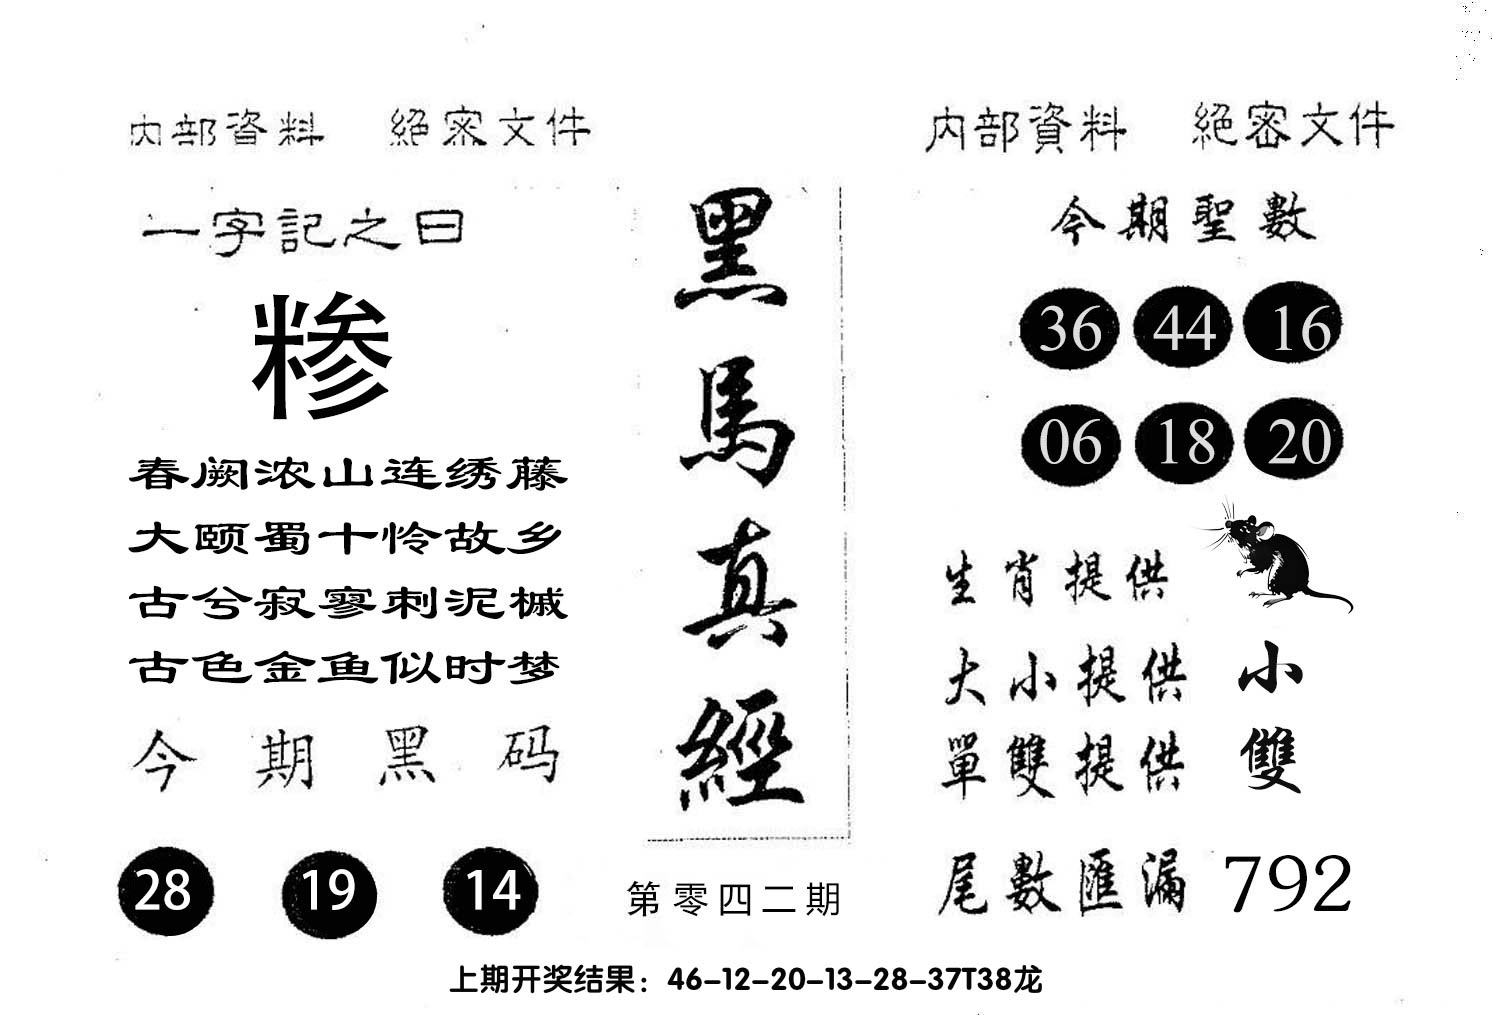 内部資料 絕密文件
一字記之曰
糁
春阙浓山连绣藤
大颐蜀十怜故乡
古兮寂寥刺泥槭
古色金鱼似时梦
今期黑码
28 19 14
黑馬真經
第零四二期
内部資料 絕密文件
今期聖數
36 44 16
06 18 20
生肖提供
大小提供 小
單雙提供 雙
尾數匯漏 792
上期开奖结果：46-12-20-13-28-37T38龙